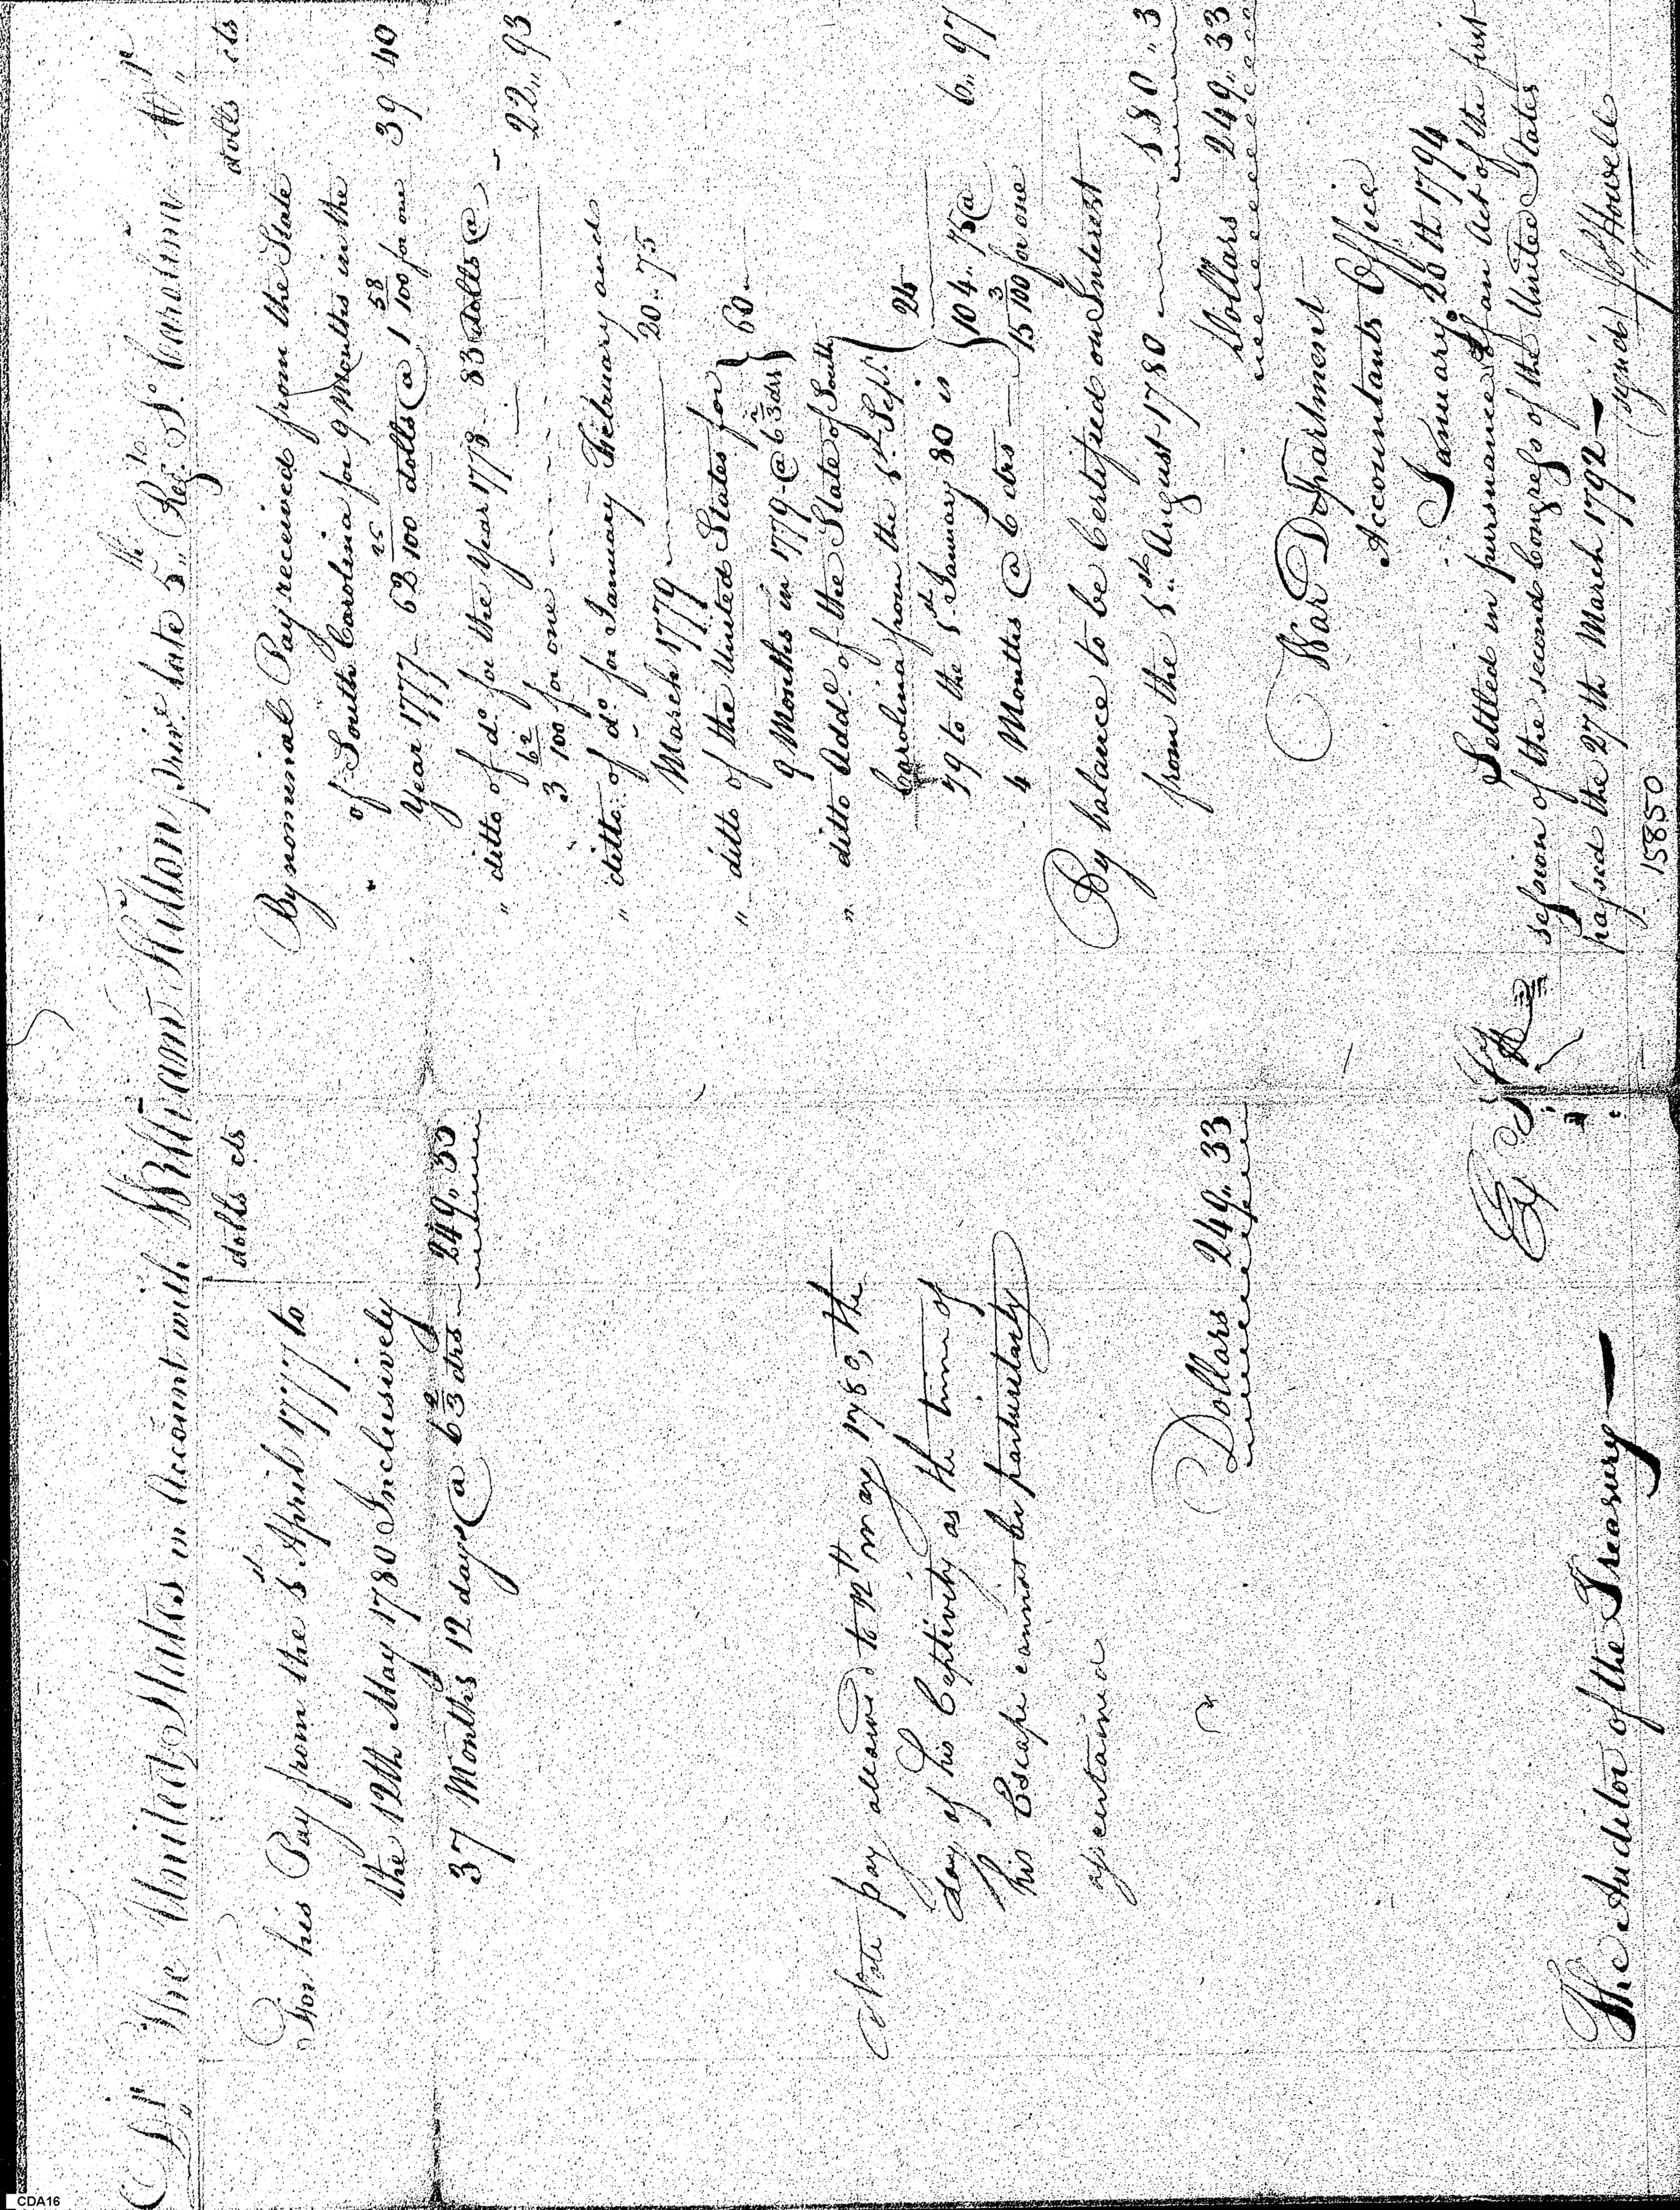 Dr The United States in Account with William Hilton private late 5th Regt So Carolina Cr
dolls cts
For his Pay from the 5th April 1777 to
the 12th May 1780 Inclusively
37 Months 12 days @ 6 2/3 drs 249,, 33
Note pay allowed to 12th may 1780, the
day of his Captivity as the time of
his Escape cannot be particularly
ascertained
Dollars 249,, 33
The Auditor of the Treasury
dolls cts
By nominal Pay received from the State
of South Carolina for 9 Months in the
Year 1777 62 25/100 dolls @ 1 58/100 for one 39 40
" ditto of do for the Year 1778 83 dolls @
3 62/100 for one 22,, 93
" ditto of do for January February and
March 1779 20.. 75
" ditto of the United States for
9 Months in 1779 @ 6 2/3 drs } 60
" ditto Addl of the State of South
Carolina from the 5th Sept.
79 to the 5th January 80 is } 24
4 Months @ 6 drs } 104,, 75 @ 15 3/100 for one 6,, 97
By balance to be Certified on Interest
from the 5th August 1780 180,, 3
Dollars 249,, 33
War Department
Accountants Office
January 20th 1794
Settled in pursuance of an Act of the first
session of the second Congress of the United States
passed the 27th March 1792
(signed) Jo Howell
15850
CDA16